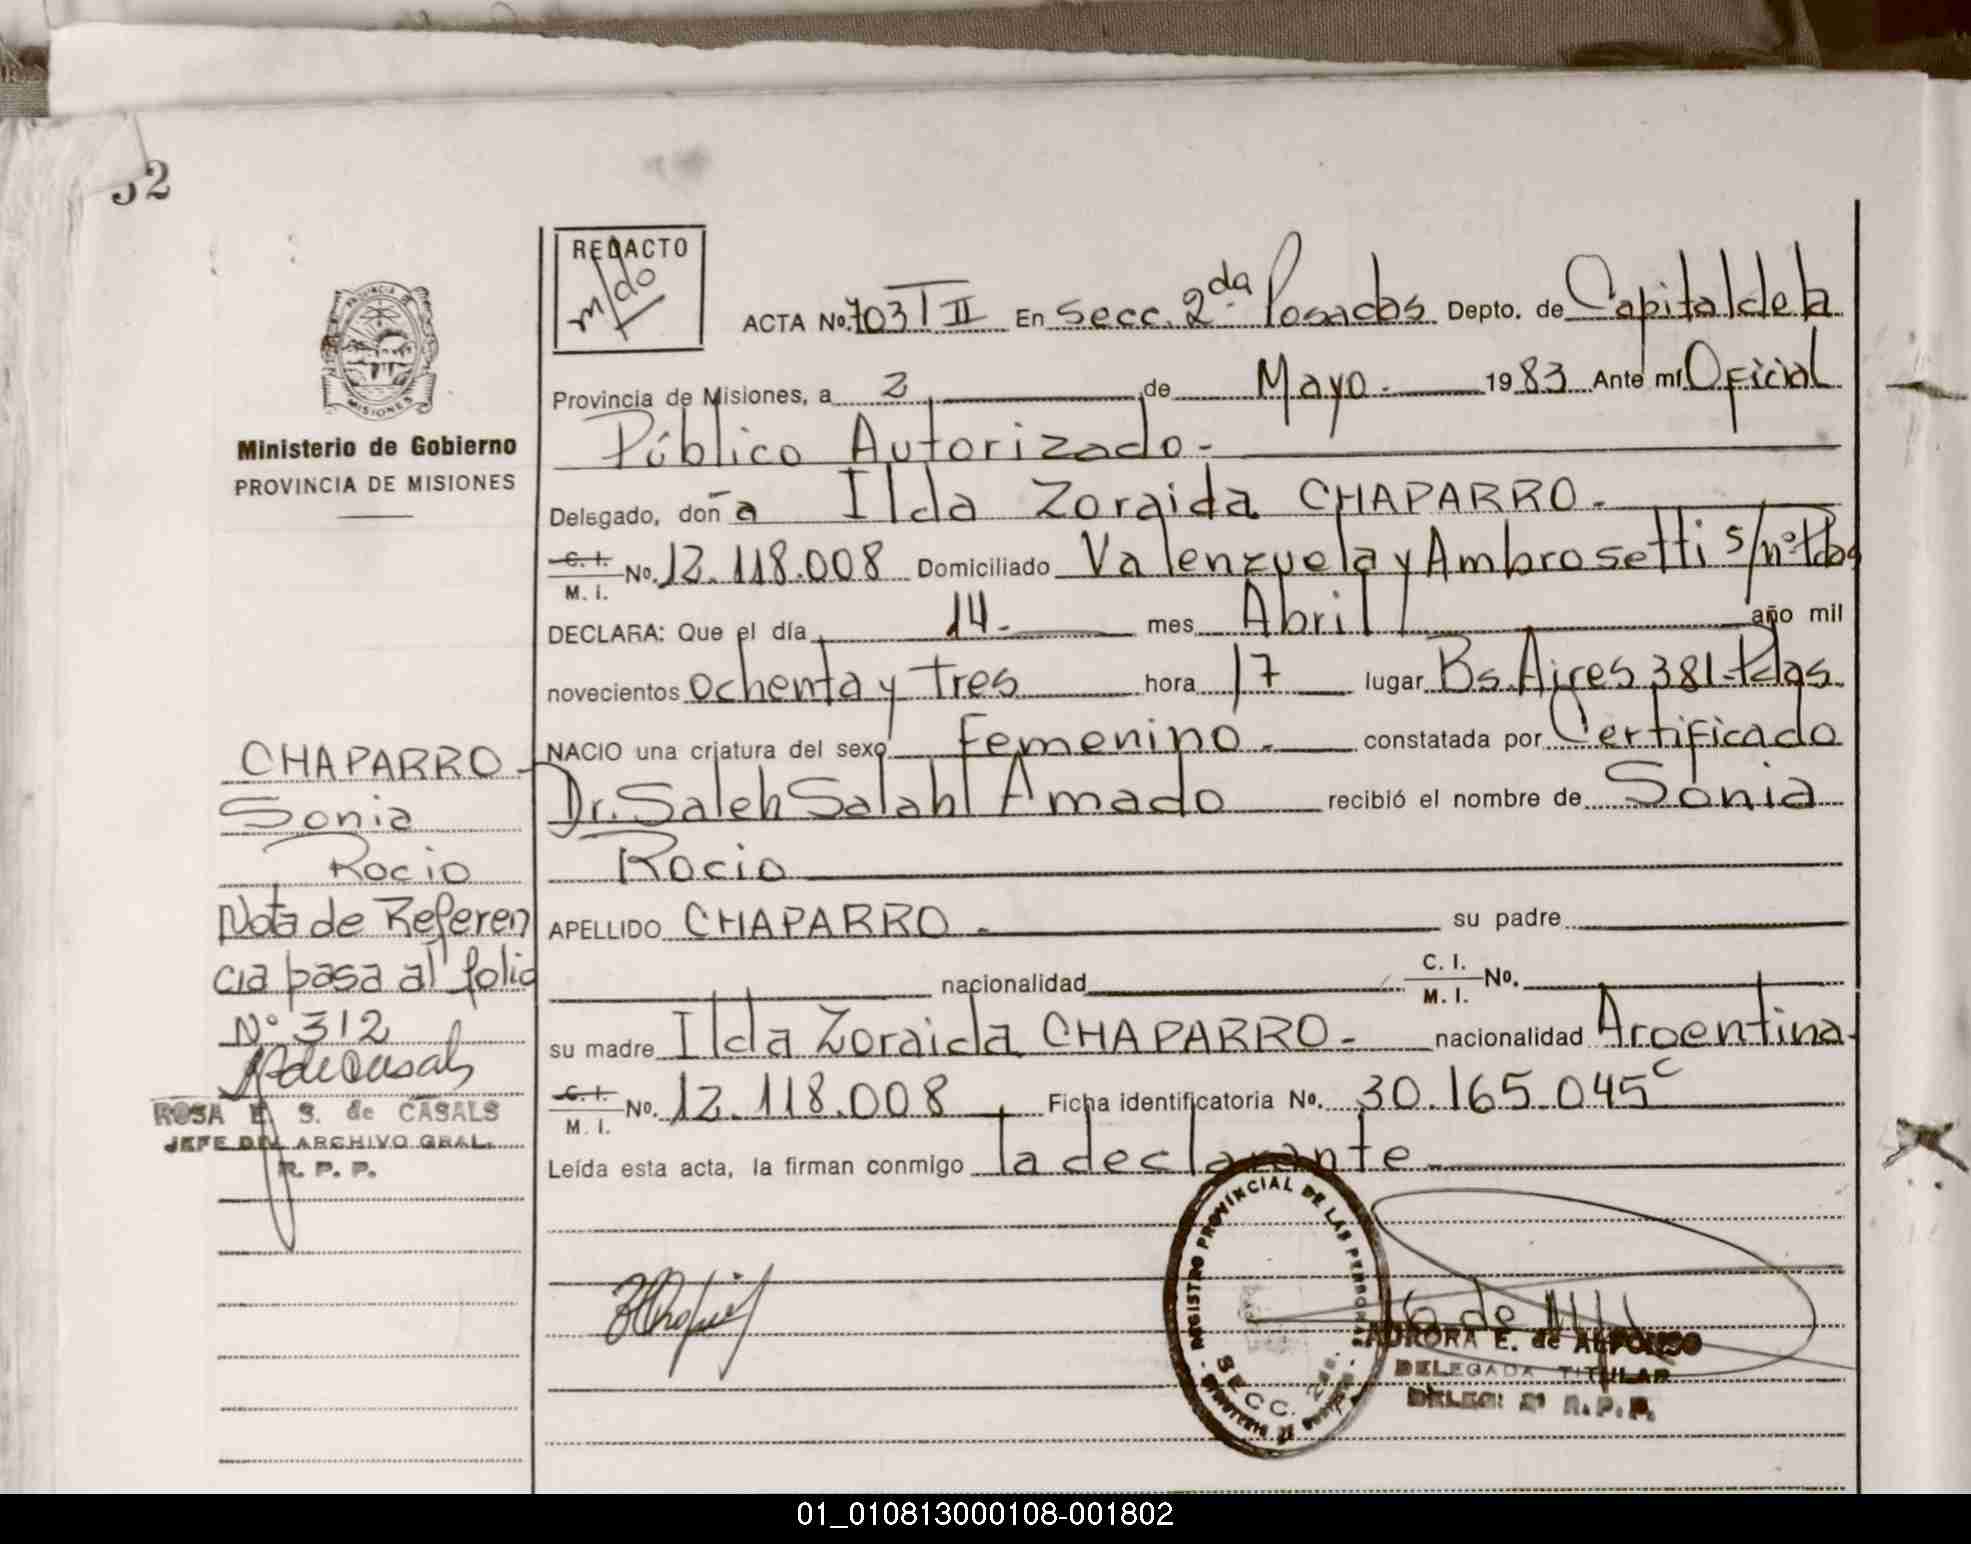 32
REDACTO
m/do
ACTA No. 703 T II En Secc. 2da Posadas Depto. de Capital de la
PROVINCIA DE
MISIONES
Provincia de Misiones, a 2 de Mayo.- 1983 Ante mí Oficial
Ministerio de Gobierno
PROVINCIA DE MISIONES
Público Autorizado.-
Delegado, doña Ilda Zoraida CHAPARRO.-
C. I.
M. I. No. 12.118.008 Domiciliado Valenzuela y Ambrosetti s/nº Pdas
DECLARA: Que el día 14.- mes Abril año mil
novecientos ochenta y tres hora 17 lugar Bs. Aires 381-Pdas.
NACIO una criatura del sexo Femenino.- constatada por Certificado
Dr. Saleh Salahl Amado recibió el nombre de Sonia
Rocio
APELLIDO CHAPARRO.- su padre
nacionalidad C. I.
M. I. No.
su madre Ilda Zoraida CHAPARRO.- nacionalidad Argentina.
C. I.
M. I. No. 12.118.008 Ficha identificatoria No. 30.165.045 c
Leída esta acta, la firman conmigo la declarante.
CHAPARRO-
Sonia
Rocio
Nota de Referen
cia pasa al folio
N° 312
ROSA E. S. de CASALS
JEFE DEL ARCHIVO GRAL.
R. P. P.
REGISTRO PROVINCIAL DE LAS PERSONAS
SECC. 2da.
AURORA E. de ALFONSO
DELEGADA TITULAR
DELEG. 2ª R.P.P.
01_010813000108-001802